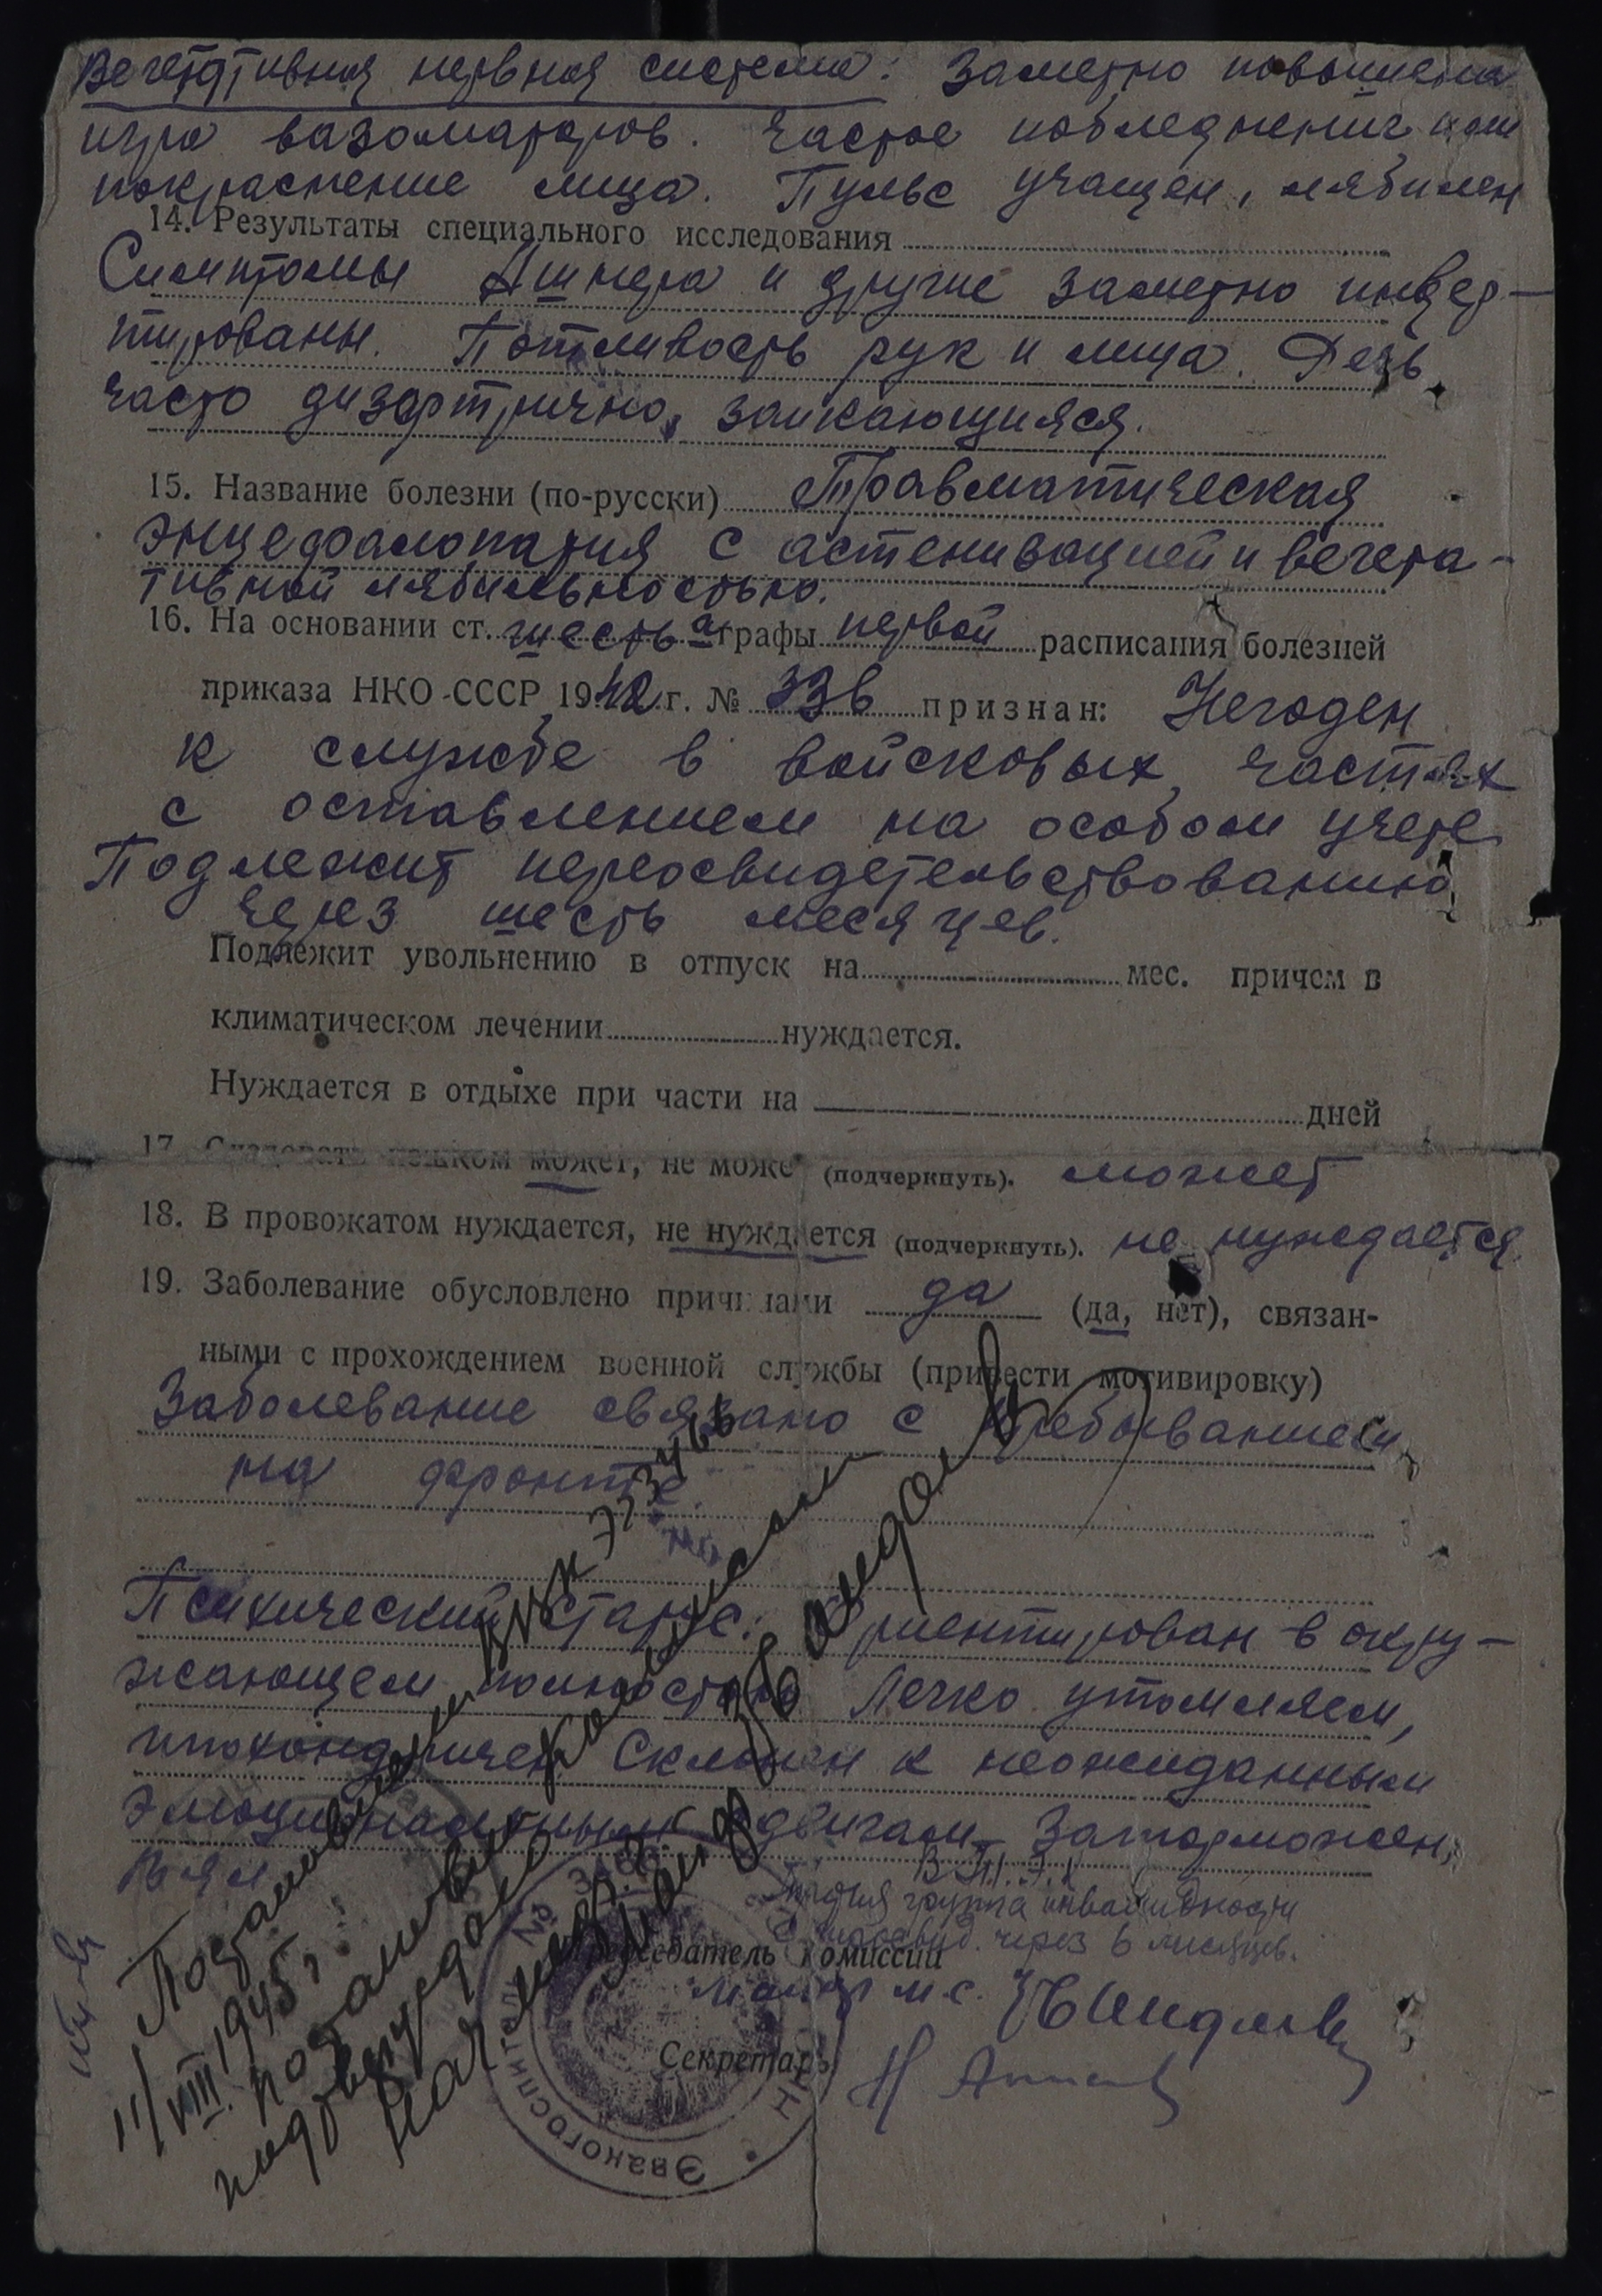 Вегетативная нервная система: Заметно повышена
игра вазомоторов. Частое побледнение или
покраснение лица. Пульс учащен, лябилен
14. Результаты специального исследования
Симптомы Ашнера и другие заметно инвер-
тированы. Потливость рук и лица. Речь
часто дизартрично, заикающийся.
15. Название болезни (по-русски) Травматическая
энцефалопатия с астенизацией и вегета-
тивной лябильностью.
16. На основании ст. шесть а графы первой расписания болезней
приказа НКО СССР 1942 г. № 336 признан: Негоден
к службе в войсковых частях
с оставлением на особом учете
Подлежит переосвидетельствованию
через шесть месяцев.
Подлежит увольнению в отпуск на мес. причем в
климатическом лечении нуждается.
Нуждается в отдыхе при части на дней
17. Следовать пешком может, не може (подчеркнуть). может
18. В провожатом нуждается, не нуждается (подчеркнуть). не нуждается.
19. Заболевание обусловлено причинами да (да, нет), связан-
ными с прохождением военной службы (привести мотивировку)
Заболевание связано с пребыванием
на фронте.
Психический статус: Ориентирован в окру-
жающем полностью. Легко утомляем,
ипохондричен. Склонен к неожиданным
эмоциональным сдвигам. Заторможен,
вял.
ВТЭК
Третья группа инвалидности
через 6 месяцев.
Председатель комиссии
майор м.с.
Секретарь
Эвакогоспиталь №
11/VIII 1945 г.